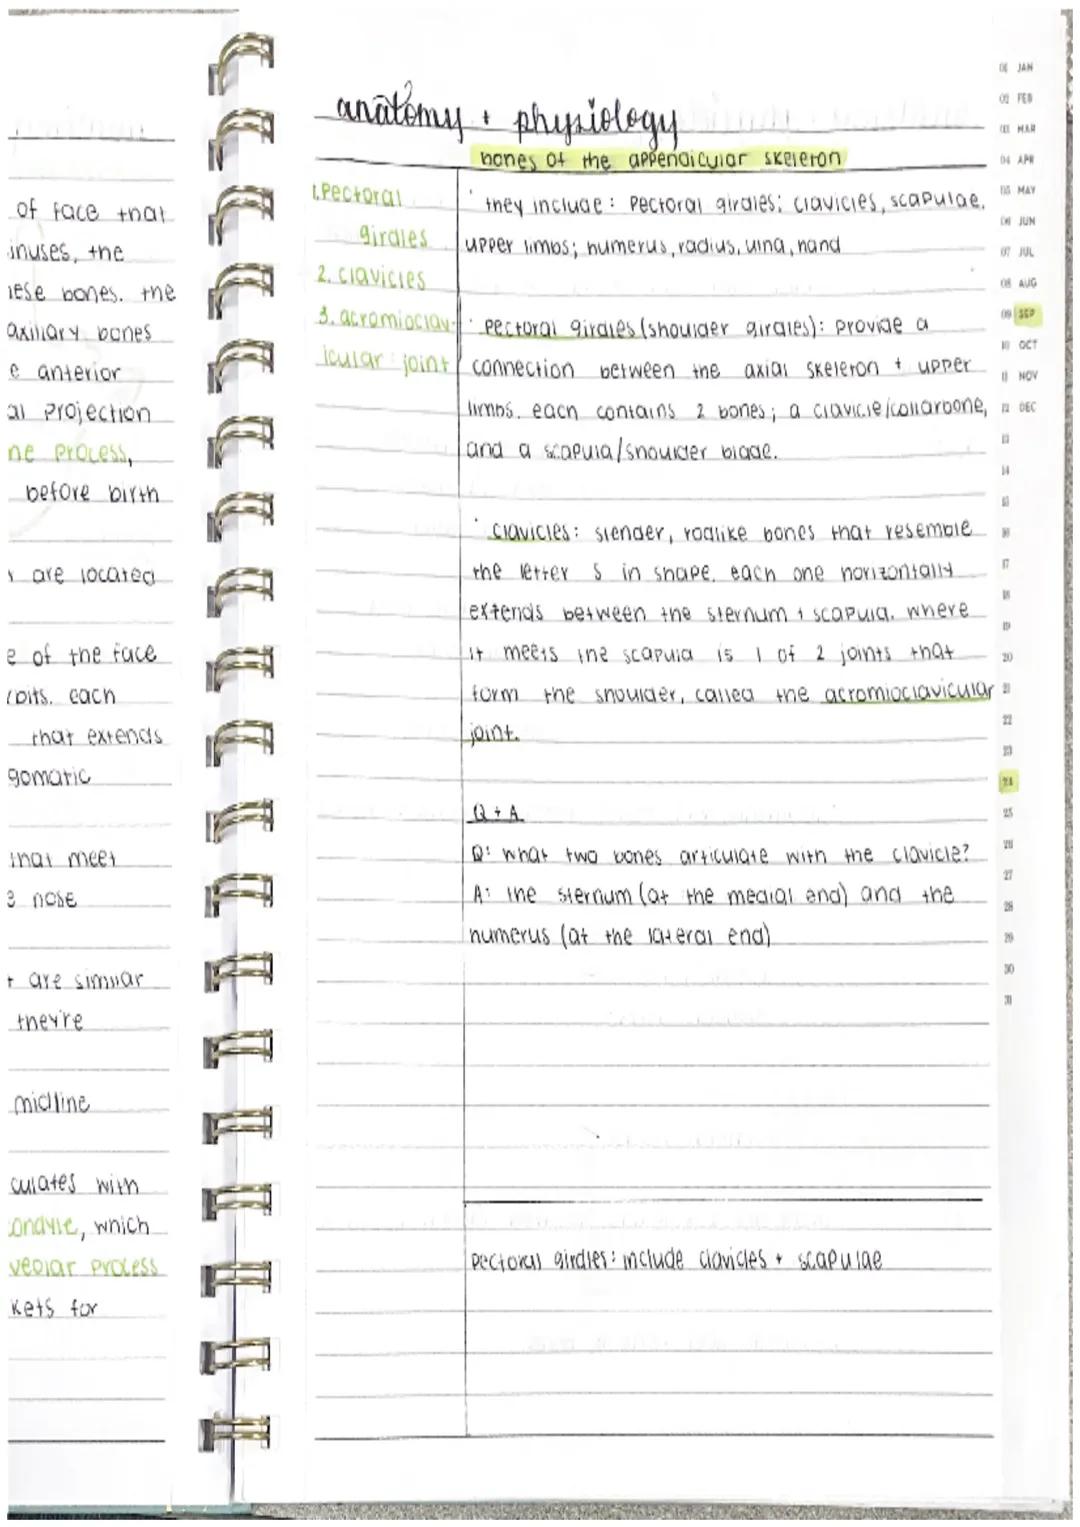 of face that
sinuses, the
these bones. the
axillary bones
e anterior
al projection
ne process,
before birth
are located
e of the face
rbits. each
that extends
gomatic
that meet
e nose
t are similar
they're
midline
culates with
condyle, which
veolar process
kets for
anatomy + physiology
bones of the appendicular skeleton
1. Pectoral
girdles
2. clavicles
3. acromioclav-
icular joint
· they include: Pectoral girdles; clavicles, scapulae,
upper limbs; humerus, radius, ulna, hand
· pectoral girdles (shoulder girdles): provide a
connection between the axial skeleton + upper
limbs. each contains 2 bones; a clavicle/collarbone,
and a scapula/shoulder blade.
· clavicles: slender, rodlike bones that resemble
the letter S in shape. each one horizontally
extends between the sternum + scapula. where
it meets the scapula is 1 of 2 joints that
form the shoulder, called the acromioclavicular
joint.
Q + A
Q: what two bones articulate with the clavicle?
A: the sternum (at the medial end) and the
humerus (at the lateral end)
pectoral girdles: include clavicles + scapulae
01 JAN
02 FEB
03 MAR
04 APR
05 MAY
06 JUN
07 JUL
08 AUG
09 SEP
10 OCT
11 NOV
12 DEC
13
14
15
16
17
18
19
20
21
22
23
24
25
26
27
28
29
30
31